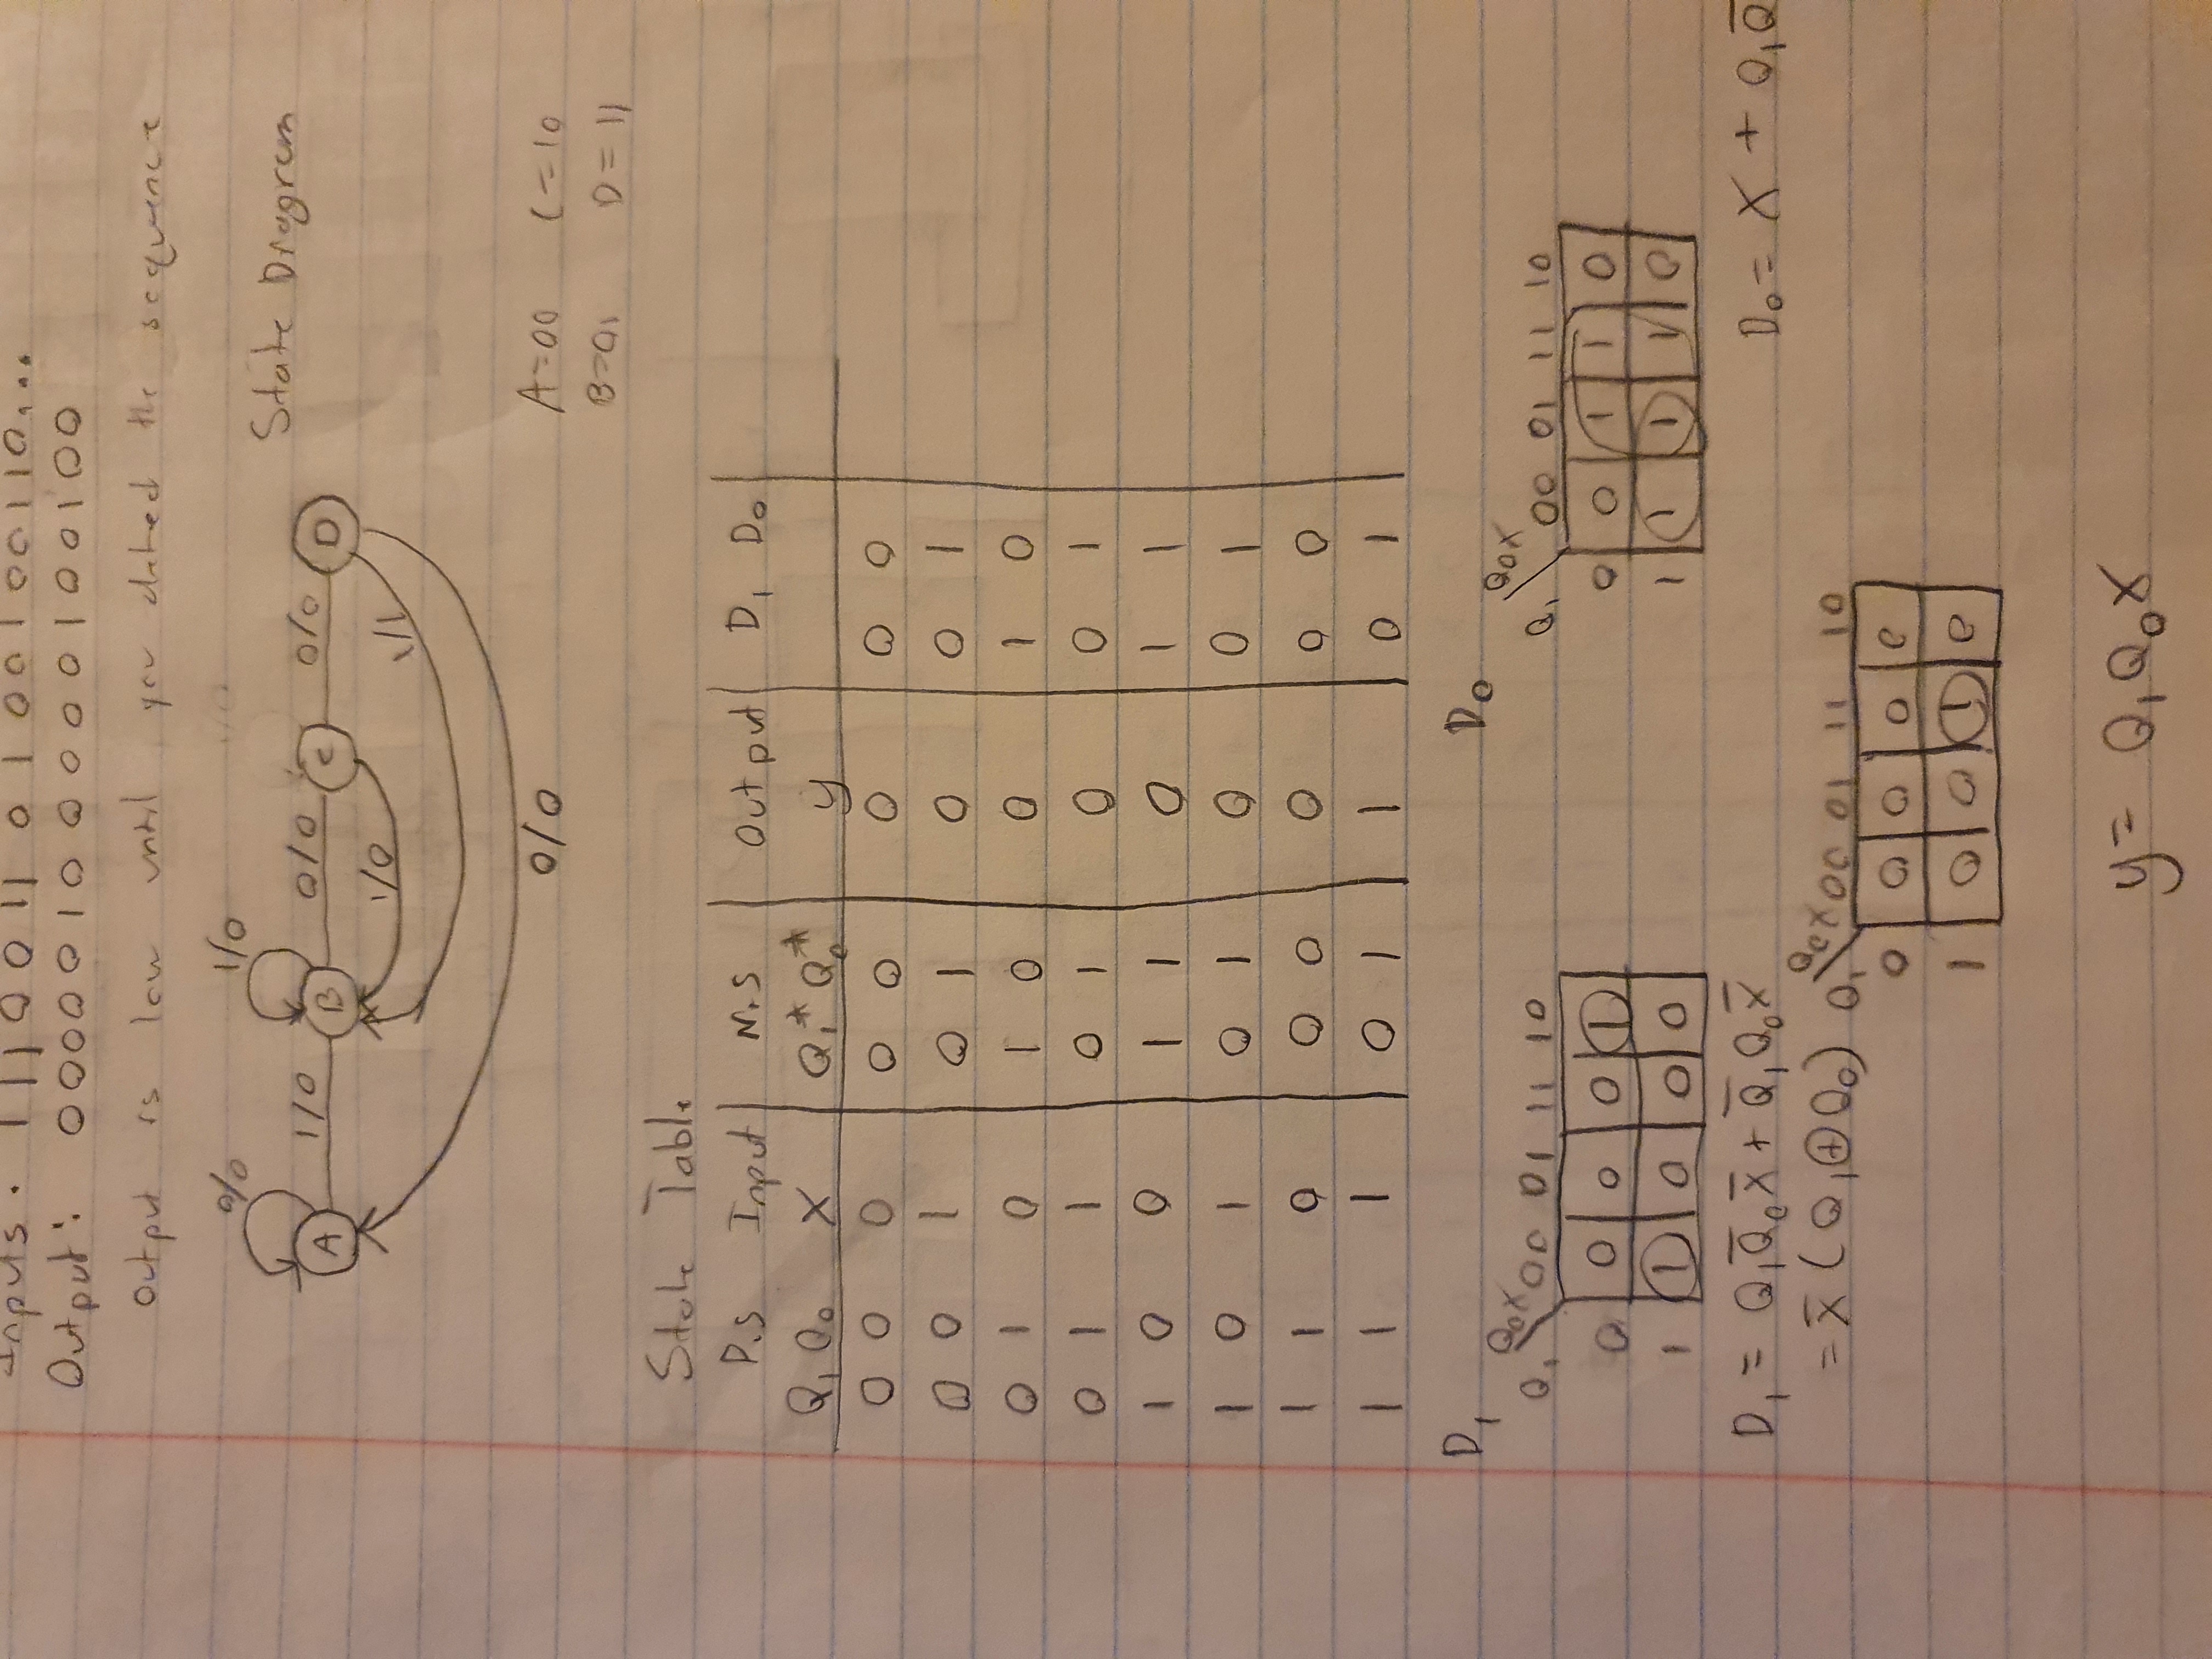 Inputs: 1 1 1 0 0 1 1 0 1 0 0 1 0 0 1 1 0 ...
Output: 0 0 0 0 0 1 0 0 0 0 0 1 0 0 1 0 0
Output is low until you detect the sequence
0/0 1/0
State Diagram
A 1/0 B 0/0 C 0/0 D
1/0 1/1
0/0
A=00 C=10
B=01 D=11
State Table
P.S Input N.S Output D₁ D₀
Q₁ Q₀ X Q₁* Q₀* y
0 0 0 0 0 0 0 0
0 0 1 0 1 0 0 1
0 1 0 1 0 0 1 0
0 1 1 0 1 0 0 1
1 0 0 1 1 0 1 1
1 0 1 0 1 0 0 1
1 1 0 0 0 0 0 0
1 1 1 0 1 1 0 1
D₁ D₀
Q₀X Q₀X
Q₁ 00 01 11 10 Q₁ 00 01 11 10
0 0 0 0 1 0 0 1 1 0
1 1 0 0 0 1 1 1 1 0
D₁ = Q₁Q̅₀x̅ + Q̅₁Q₀x̅ D₀ = X + Q₁Q̅
= x̅ (Q₁⊕Q₀) Q₁ Q₀X 00 01 11 10
0 0 0 0 0
1 0 0 1 0
y = Q₁Q₀X